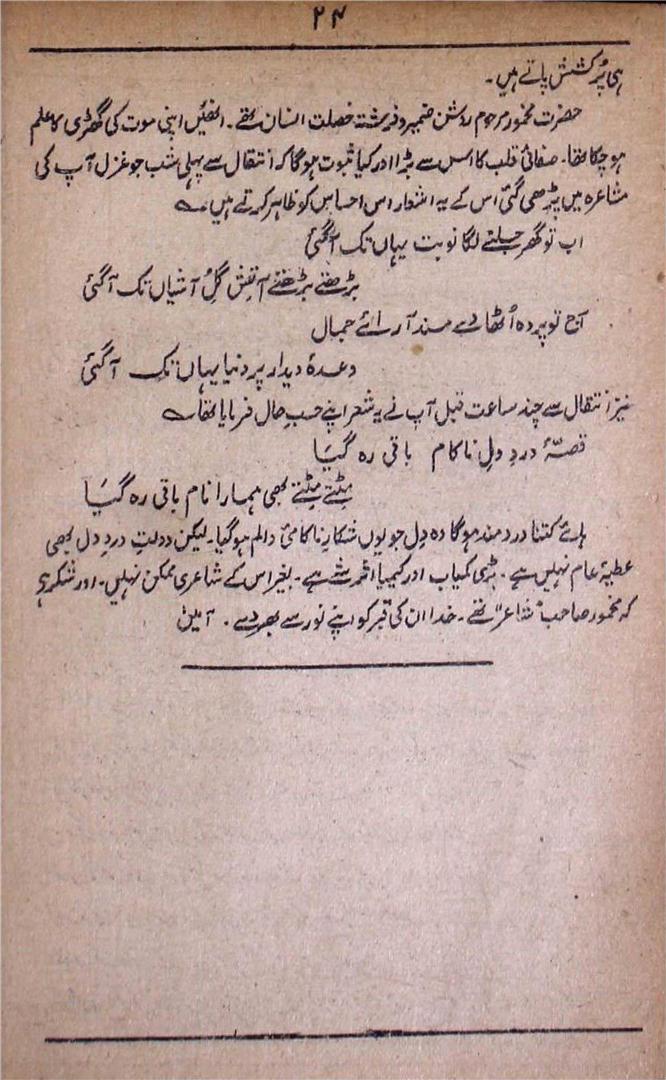 ۲۴
ہی پُر کشش پاتے ہیں۔
حضرت مخمور مرحوم روشن ضمیر و فرشتہ خصلت انسان تھے۔ انھیں اپنی موت کی گھڑی کا علم
ہو چکا تھا۔ صفائی قلب کا اس سے بڑا اور کیا ثبوت ہو گا کہ انتقال سے پہلی شب جو غزل آپ کی
مشاعرہ میں پڑھی گئی اس کے یہ اشعار اس احساس کو ظاہر کرتے ہیں؎
اب تو گھر جلنے لگا نوبت یہاں تک آ گئی
بڑھتے بڑھتے آتشِ گُل آشیاں تک آ گئی
آج تو پردہ اُٹھا دے مسند آرائے جمال
وعدۂ دیدار پر دنیا یہاں تک آ گئی
نیز انتقال سے چند ساعت قبل آپ نے یہ شعر اپنے حسبِ حال فرمایا تھا؎
قصّۂ دردِ دلِ ناکام باقی رہ گیا
مِٹتے مِٹتے بھی ہمارا نام باقی رہ گیا
ہائے کتنا درد مند ہو گا وہ دِل جو یوں شکارِ ناکامیٔ و الم ہو گیا۔ لیکن دولتِ دردِ دل بھی
عطیۂ عام نہیں ہے۔ بڑی کمیاب اور کیمیا اثر شے ہے۔ بغیر اس کے شاعری ممکن نہیں۔ اور شکر ہے
کہ مخمور صاحب "شاعر" تھے۔ خدا ان کی قبر کو اپنے نور سے بھر دے۔ آمین